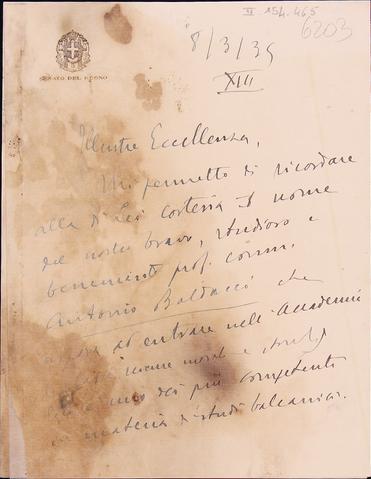 II 154.465
6203
8/3/35
XIII
SENATO DEL REGNO
Illustre Eccellenza,
Mi permetto di ricordare
alla di Lei cortesia il nome
del nostro bravo, studioso e
benemerito prof. comm.
Antonio Baldacci che
ad entrare nell'Accademia
e
uno dei più competenti
in materia di studi balcanici.